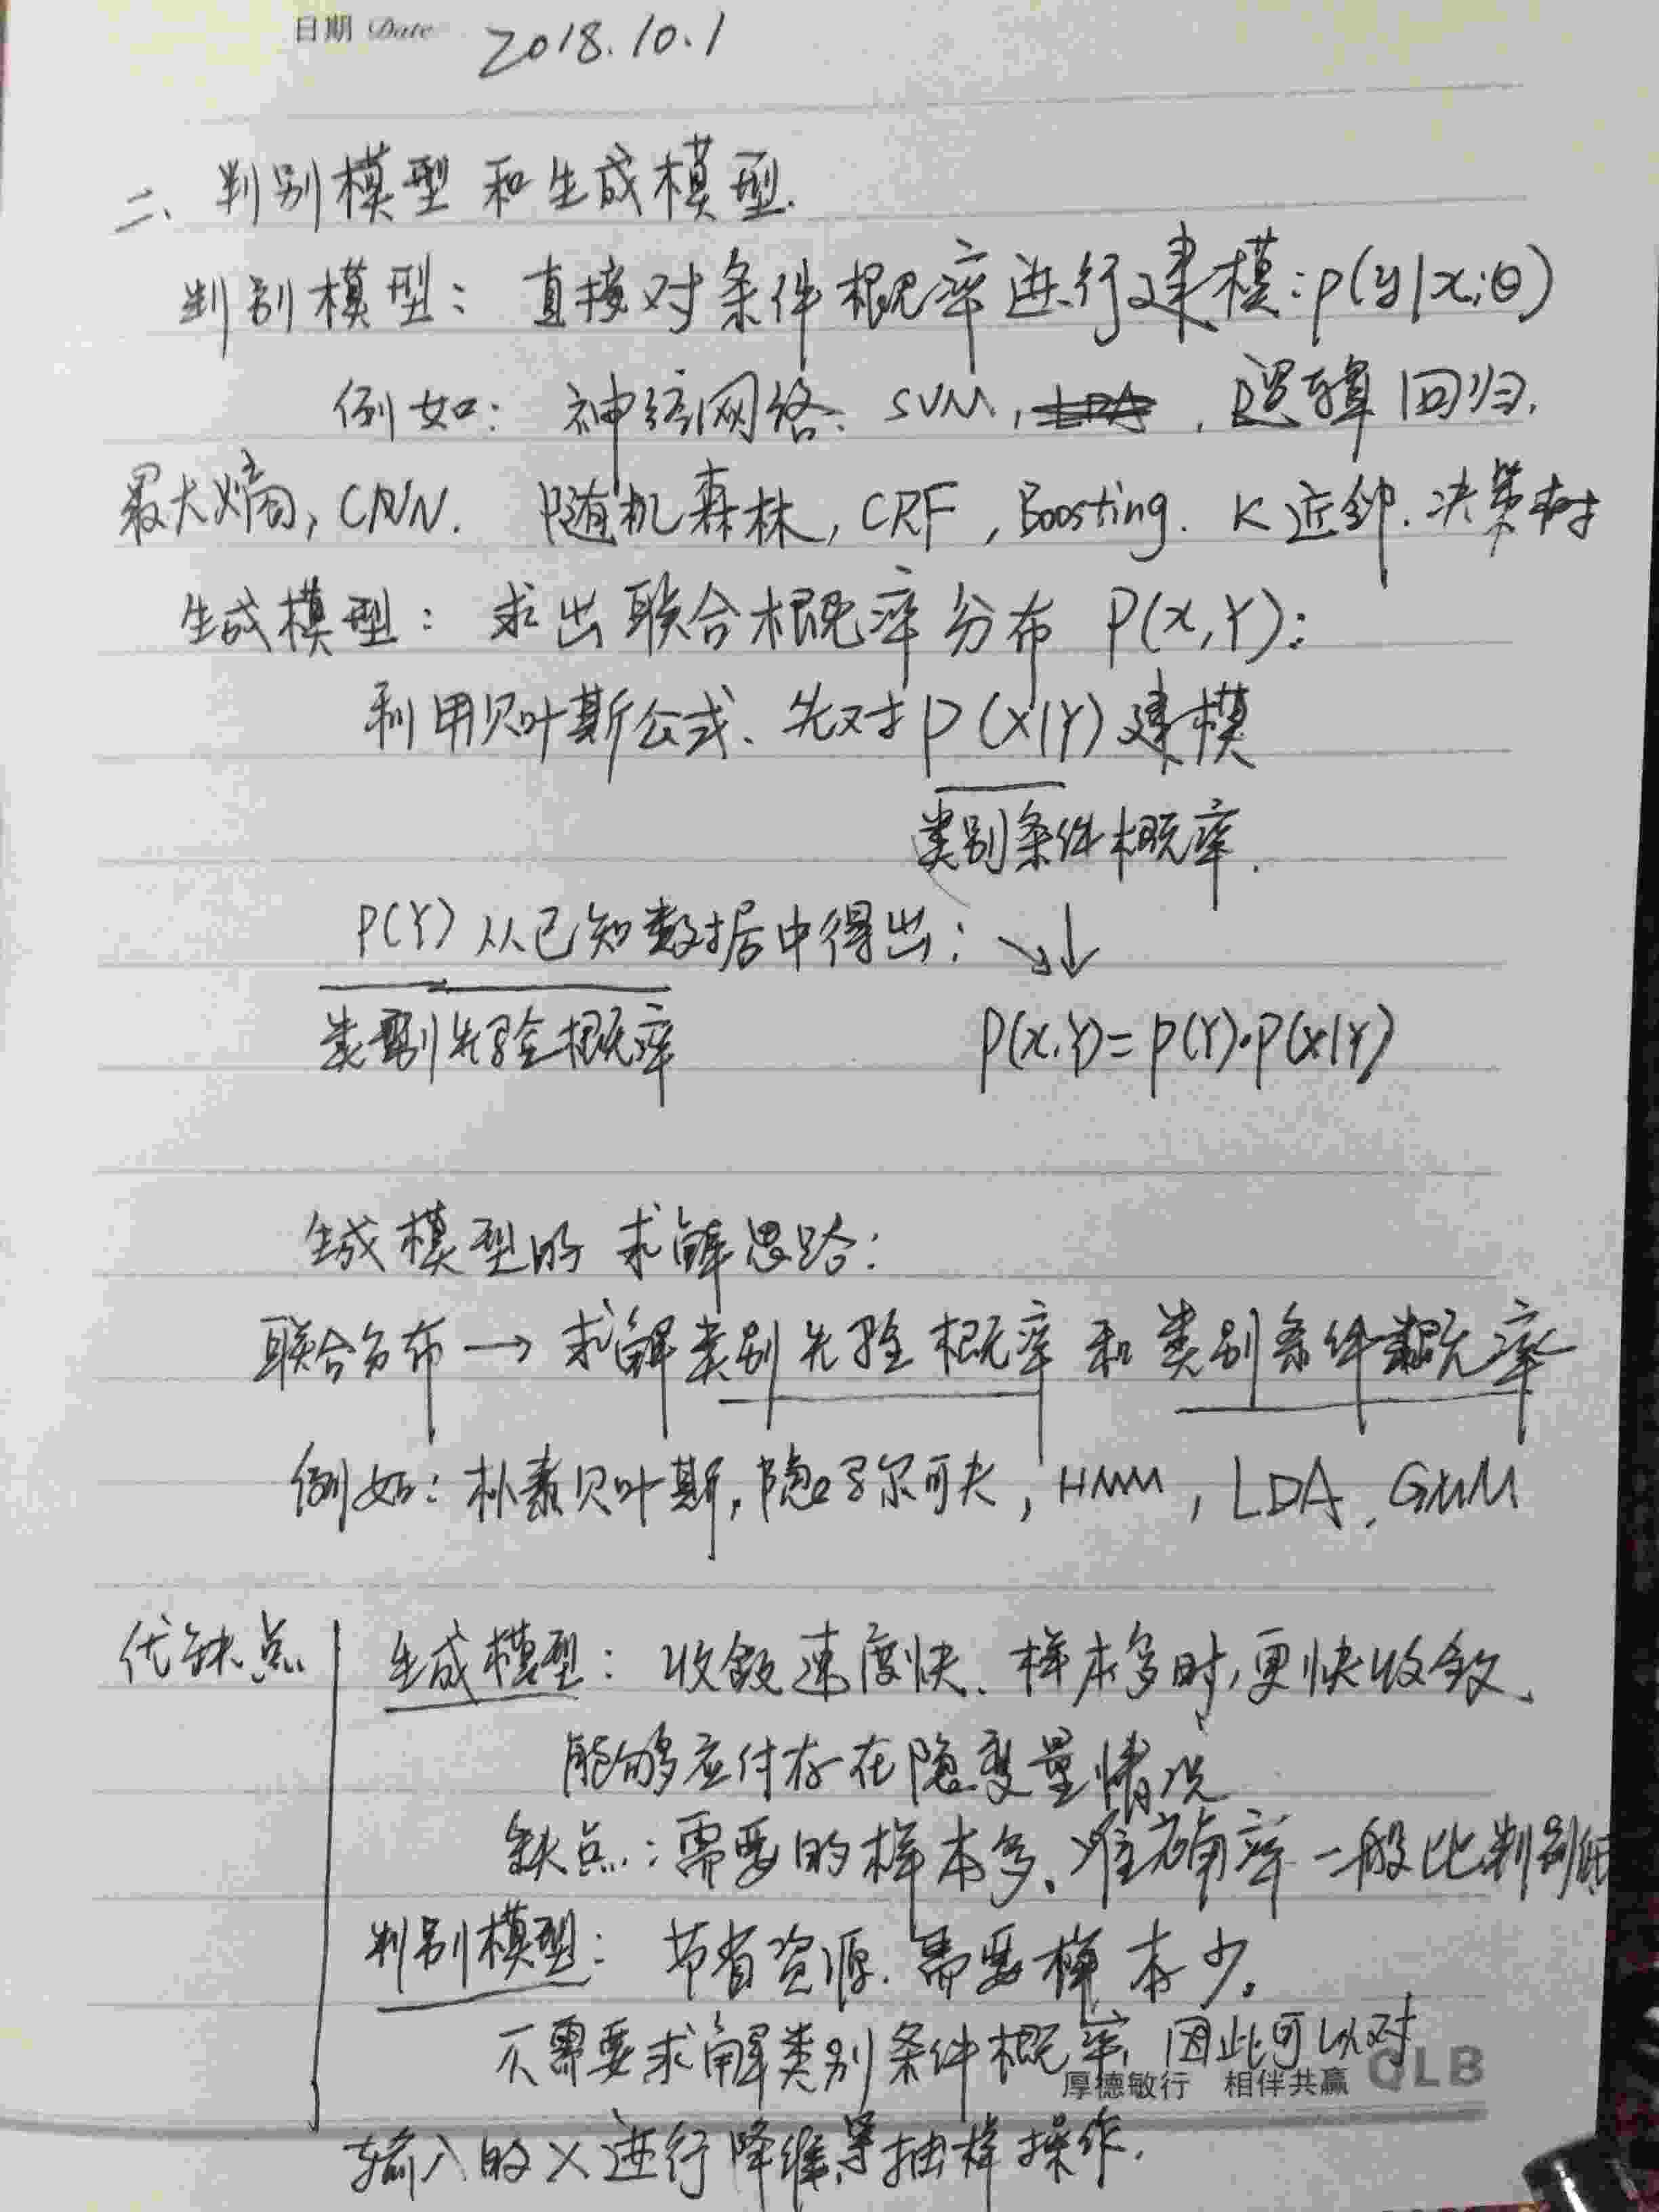 日期 Date 2018.10.1
二、判别模型和生成模型.
判别模型：直接对条件概率进行建模：p(y|x;θ)
例如：神经网络、SVM, LDA, 逻辑回归,
最大熵, CNN. 随机森林, CRF, Boosting. K近邻. 决策树
生成模型：求出联合概率分布 P(X,Y)：
利用贝叶斯公式、先对P(X|Y)建模
类别条件概率.
P(Y)从已知数据中得出：↘↓
类别先验概率 P(X,Y)=P(Y)·P(X|Y)
生成模型的求解思路：
联合分布→求解类别先验概率和类别条件概率
例如：朴素贝叶斯, 隐马尔可夫, HMM, LDA, GMM
优缺点 生成模型：收敛速度快、样本多时,更快收敛、
能够应付存在隐变量情况
缺点：需要的样本多、准确率一般比判别低
判别模型：节省资源. 需要样本少。
不需要求解类别条件概率, 因此可以对
厚德敏行 相伴共赢 QLB
输入的X进行降维等抽样操作.